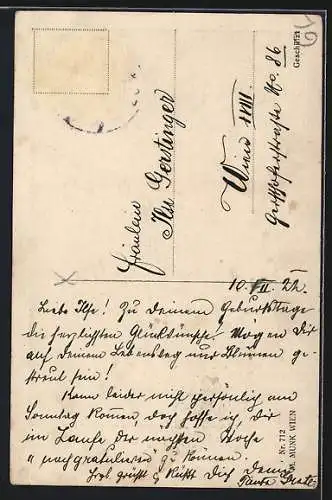 Fräulein
Ilse Gerstinger
Wien XVIII.
No. 86
Geschützt
10. II. 22.
Liebe Ilse! Zu Deinem Geburtstage
die herzlichsten Glückwünsche! Mögen Dir
auf Deinem Lebensweg nur Blumen ge-
streut sein!
Kann leider nicht persönlich am
Sonntag kommen, doch hoffe ich, Dir
im Laufe der nächsten Woche
nachgratulieren zu können.
Es grüßt & küßt Dich Deine
Tante
Nr. 712
M. MUNK WIEN